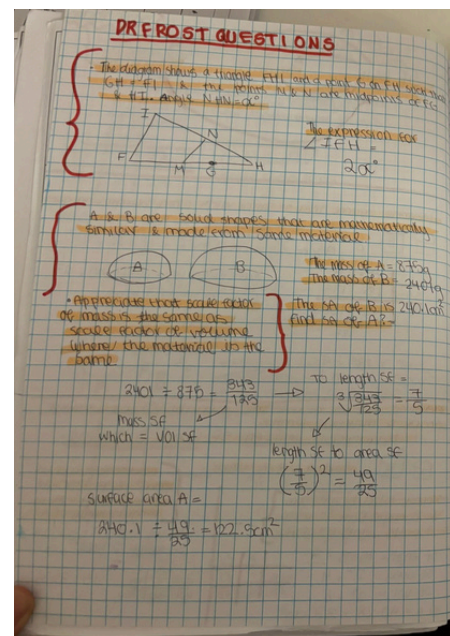 DR FROST QUESTIONS
- The diagram shows a triangle FHI and a point G on FH such that
GH = FI. A the points M & N are midpoints of FG
& HI. angle NMN = x°
I
N
F
M
G
H
The expression for
∠IFH =
2x°
A & B are solid shapes that are mathematically
similar & made from same material
A
B
The mass of A = 875g
The mass of B = 2401g
The SA of B is 240.1cm²
find SA of A:-
• Appreciate that scale factor
of mass is the same as
scale factor of volume
(where the material is the
same
2401 ÷ 875 = 343/125 →
mass SF
which = vol SF
To length SF =
∛343/125 = 7/5
length SF to area SF
(7/5)² = 49/25
surface area A =
240.1 ÷ 49/25 = 122.5cm²